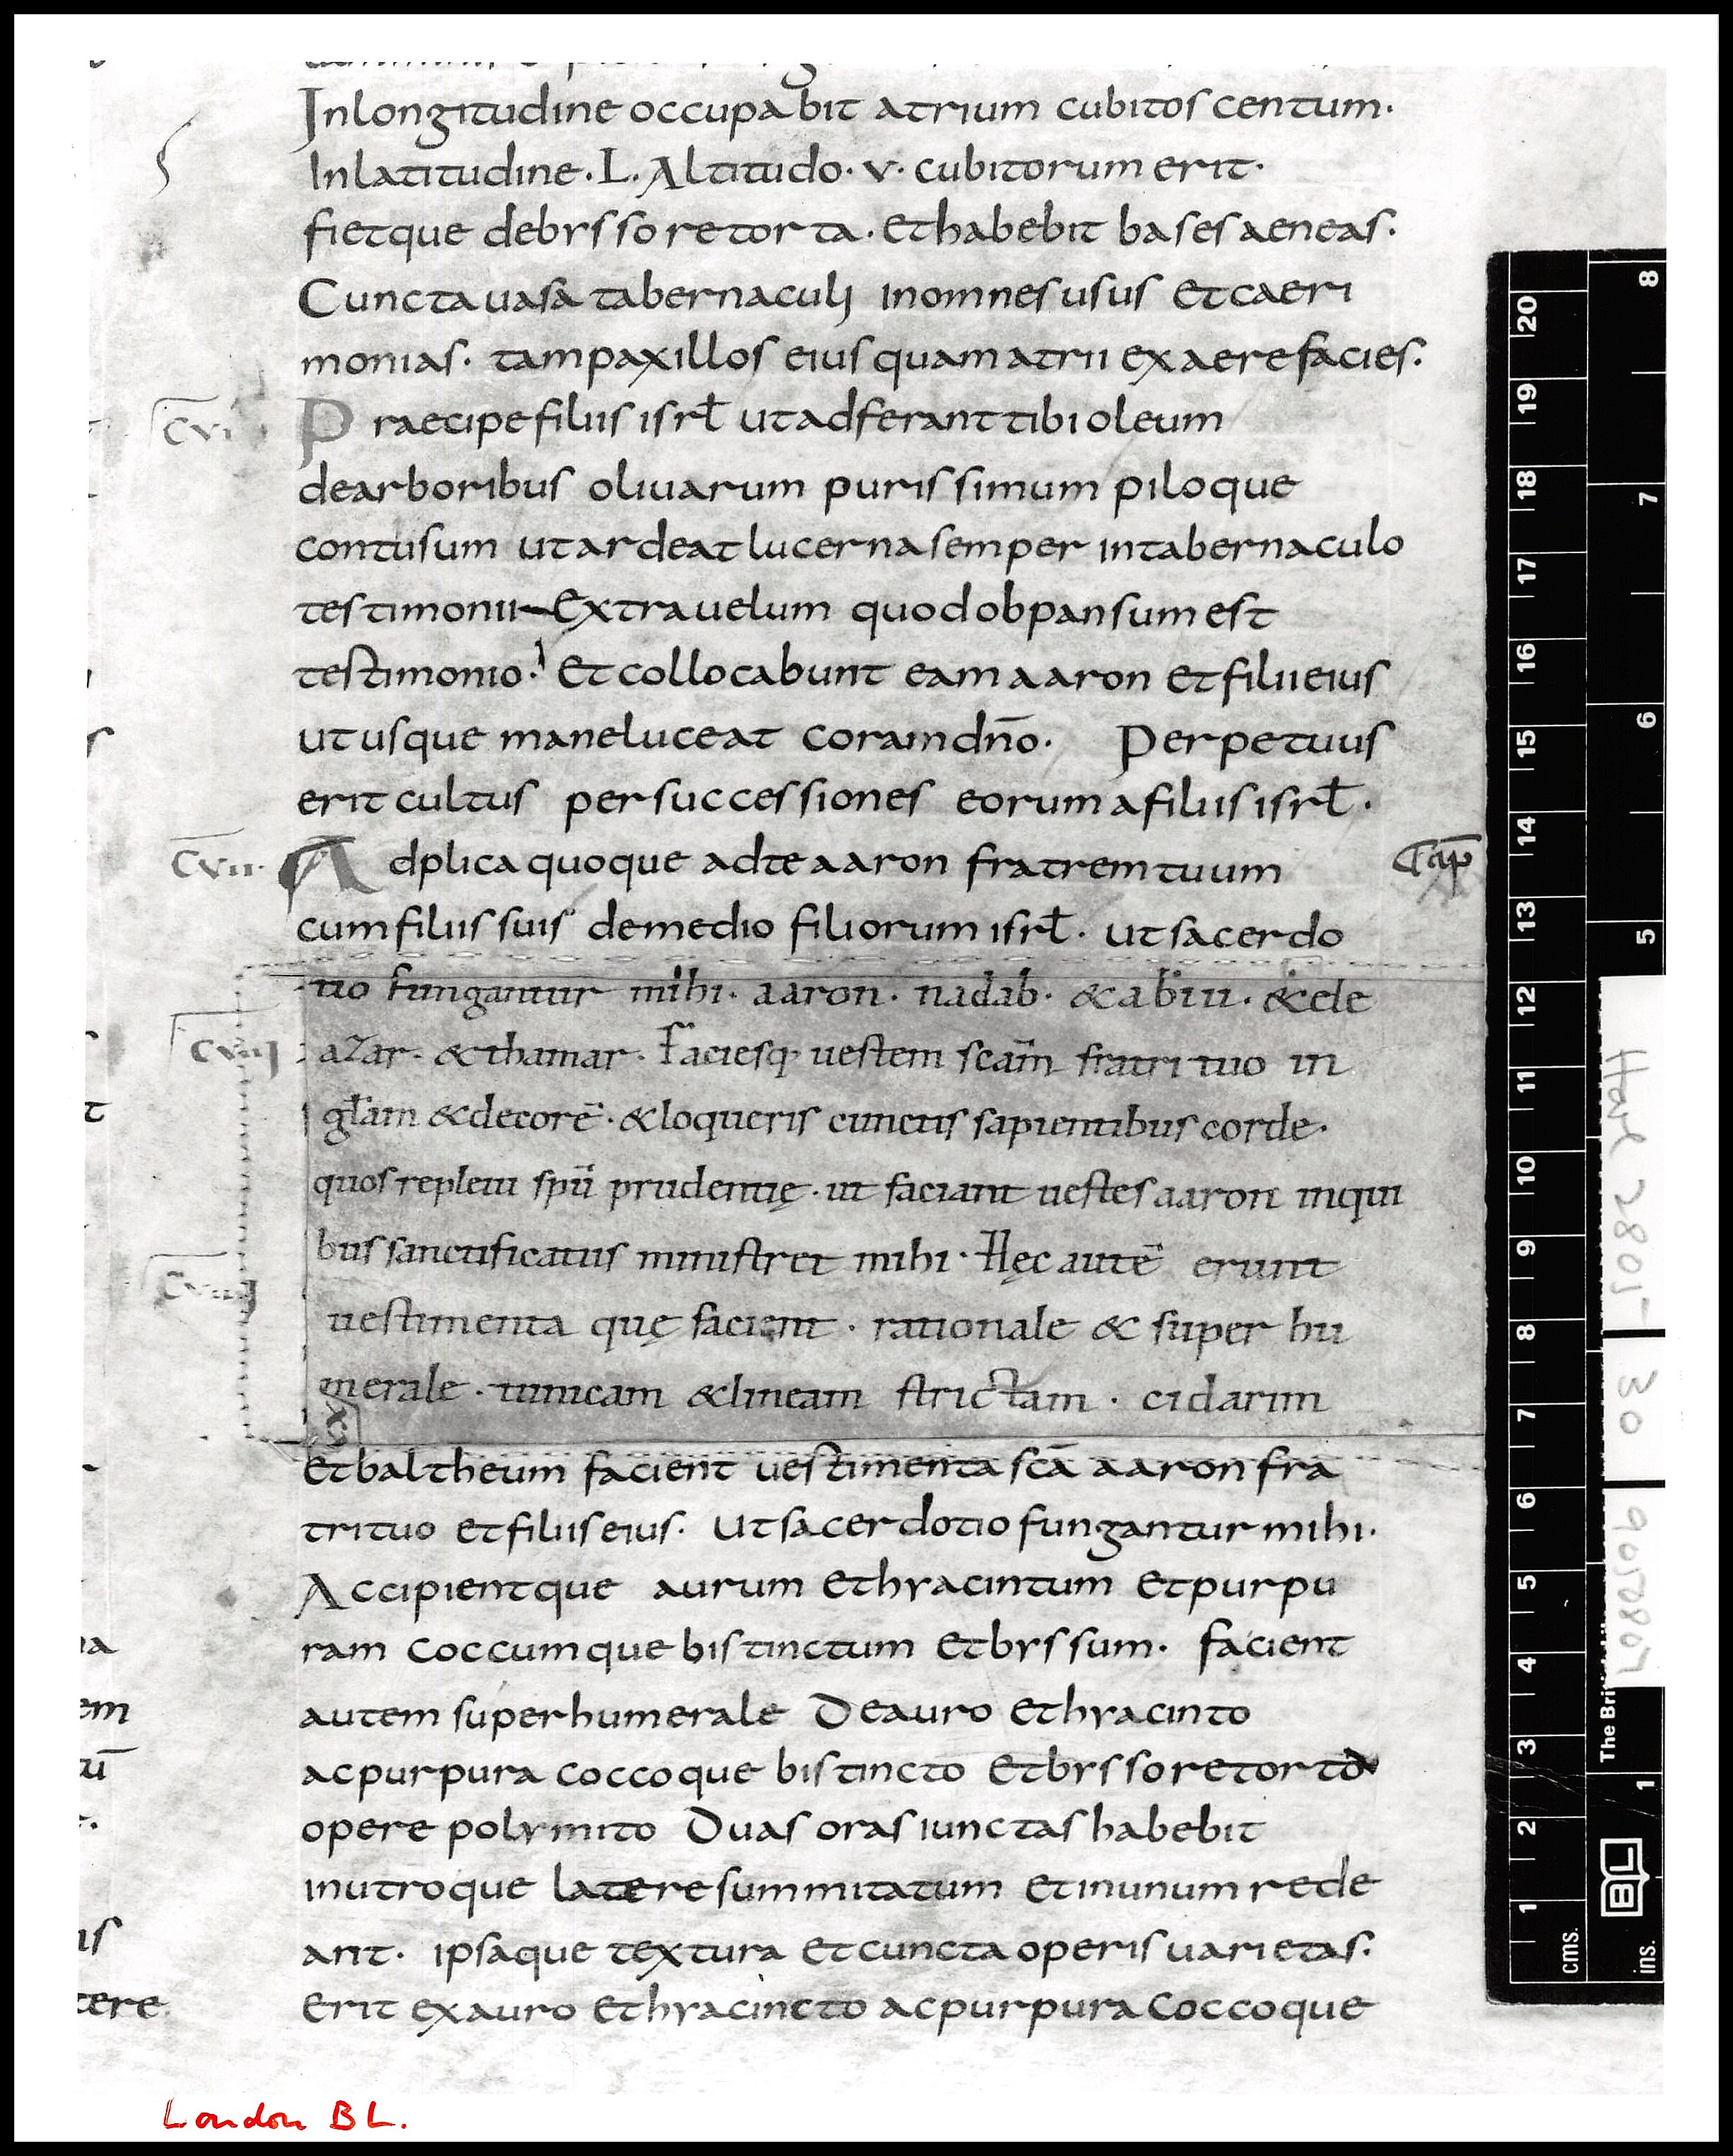 Inlongitudine occupabit atrium cubitos centum.
Inlatitudine. L. Altitudo. v. cubitorum erit.
fietque debysso retorta. et habebit bases aeneas.
Cuncta uasa tabernaculi inomnes usus et caeri
monias. tam paxillos eius quam atrii ex aere facies.
CVI
Praecipe filiis isrł ut adferant tibi oleum
dearboribus oliuarum purissimum piloque
contusum ut ardeat lucerna semper intabernaculo
testimonii Extra uelum quod obpansum est
testimonio. Et collocabunt eam aaron et filii eius
ut usque mane luceat coram dnō. Perpetuus
erit cultus per successiones eorum a filiis isrł.
CVII.
Adplica quoque ad te aaron fratrem tuum
Cap
cum filiis suis de medio filiorum isrł. ut sacerdo
tio fungantur mihi. aaron. nadab. & abiu. & ele
CVIII
azar. & thamar. Faciesq; uestem scām fratri tuo in
głam & decorē. & loqueris cunctis sapientibus corde.
quos repleui spū prudentię. ut faciant uestes aaron inqui
bus sanctificatus ministret mihi. Hęc autē erunt
uestimenta quę facient. rationale & super hu
merale. tunicam & lineam strictam. cidarim
Et baltheum facient uestimenta scā aaron fra
tri tuo et filiis eius. Ut sacerdotio fungantur mihi.
Accipientque aurum et hyacintum et purpu
ram coccumque bis tinctum et byssum. facient
autem superhumerale De auro et hyacinto
ac purpura coccoque bis tincto et bysso retorto
opere polymito Duas oras iunctas habebit
inutroque latere summitatum et inunum rede
ant. ipsaque textura et cuncta operis uarietas.
Erit ex auro et hyacincto ac purpura coccoque
em
ū
is
tere
Harl 2805
30
9010807
The Bri
BL
cms.
ins.
20 19 18 17 16 15 14 13 12 11 10 9 8 7 6 5 4 3 2 1
8 7 6 5 1
London BL.